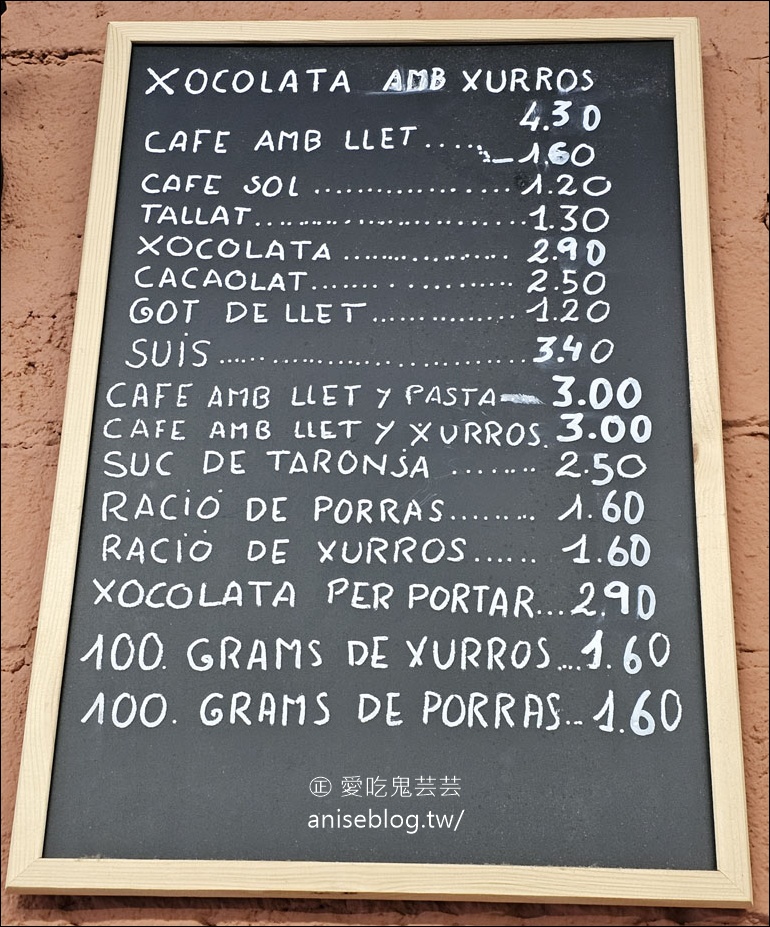 XOCOLATA AMB XURROS
4.30
CAFE AMB LLET..... 1.60
CAFE SOL .................. 1.20
TALLAT...................... 1.30
XOCOLATA ................ 2.90
CACAOLAT................. 2.50
GOT DE LLET.............. 1.20
SUiS ......................... 3.40
CAFE AMB LLET Y PASTA 3.00
CAFE AMB LLET Y XURROS. 3.00
SUC DE TARONJA ........ 2.50
RACIÓ DE PORRAS......... 1.60
RACIÓ DE XURROS...... 1.60
XOCOLATA PER PORTAR... 2.90
100. GRAMS DE XURROS... 1.60
100. GRAMS DE PORRAS... 1.60
㊣ 愛吃鬼芸芸
aniseblog.tw/